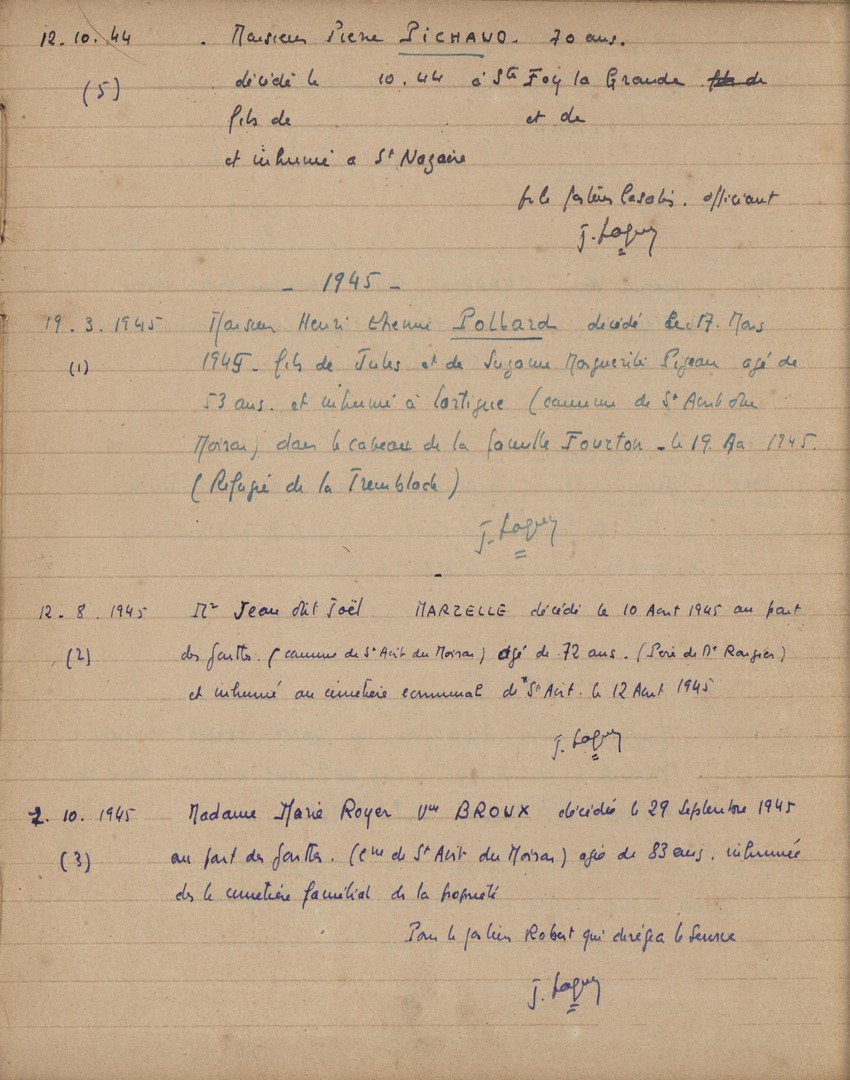 12.10.44 . Monsieur Pierre PICHAUD. 70 ans.
(5) décédé le 10.44 à Ste Foy la Grande
fils de et de
et inhumé a St Nazaire
officiant
J. Laguy
- 1945 -
19.3.1945 Monsieur Henri Etienne Pollard décédé le 17. Mars
(1) 1945 - fils de Jules et de Suzanne Marguerite Pigeau agé de
53 ans. et inhumé à Lartigue (commune de St Avit du
Moiron) dans le caveau de la famille Fourton - le 19. 1945.
(Refugié de la Tremblade)
J. Laguy
12-8.1945 Mr Jean dit Joël MARZELLE décédé le 10 Aout 1945 au port
(2) des (commune de St Avit du Moiron) agé de 72 ans. (Père de Me Rougier)
et inhumé au cimetière communal de St Avit. le 12 Aout 1945
J. Laguy
2.10.1945 Madame Marie Royer Vve BROUX décédée le 29 Septembre 1945
(3) au port des (Cne de St Avit du Moiron) agée de 83 ans. inhumée
ds le cimetière familial de la propriété
Pour le pasteur Robert qui dirigea le Service
J. Laguy